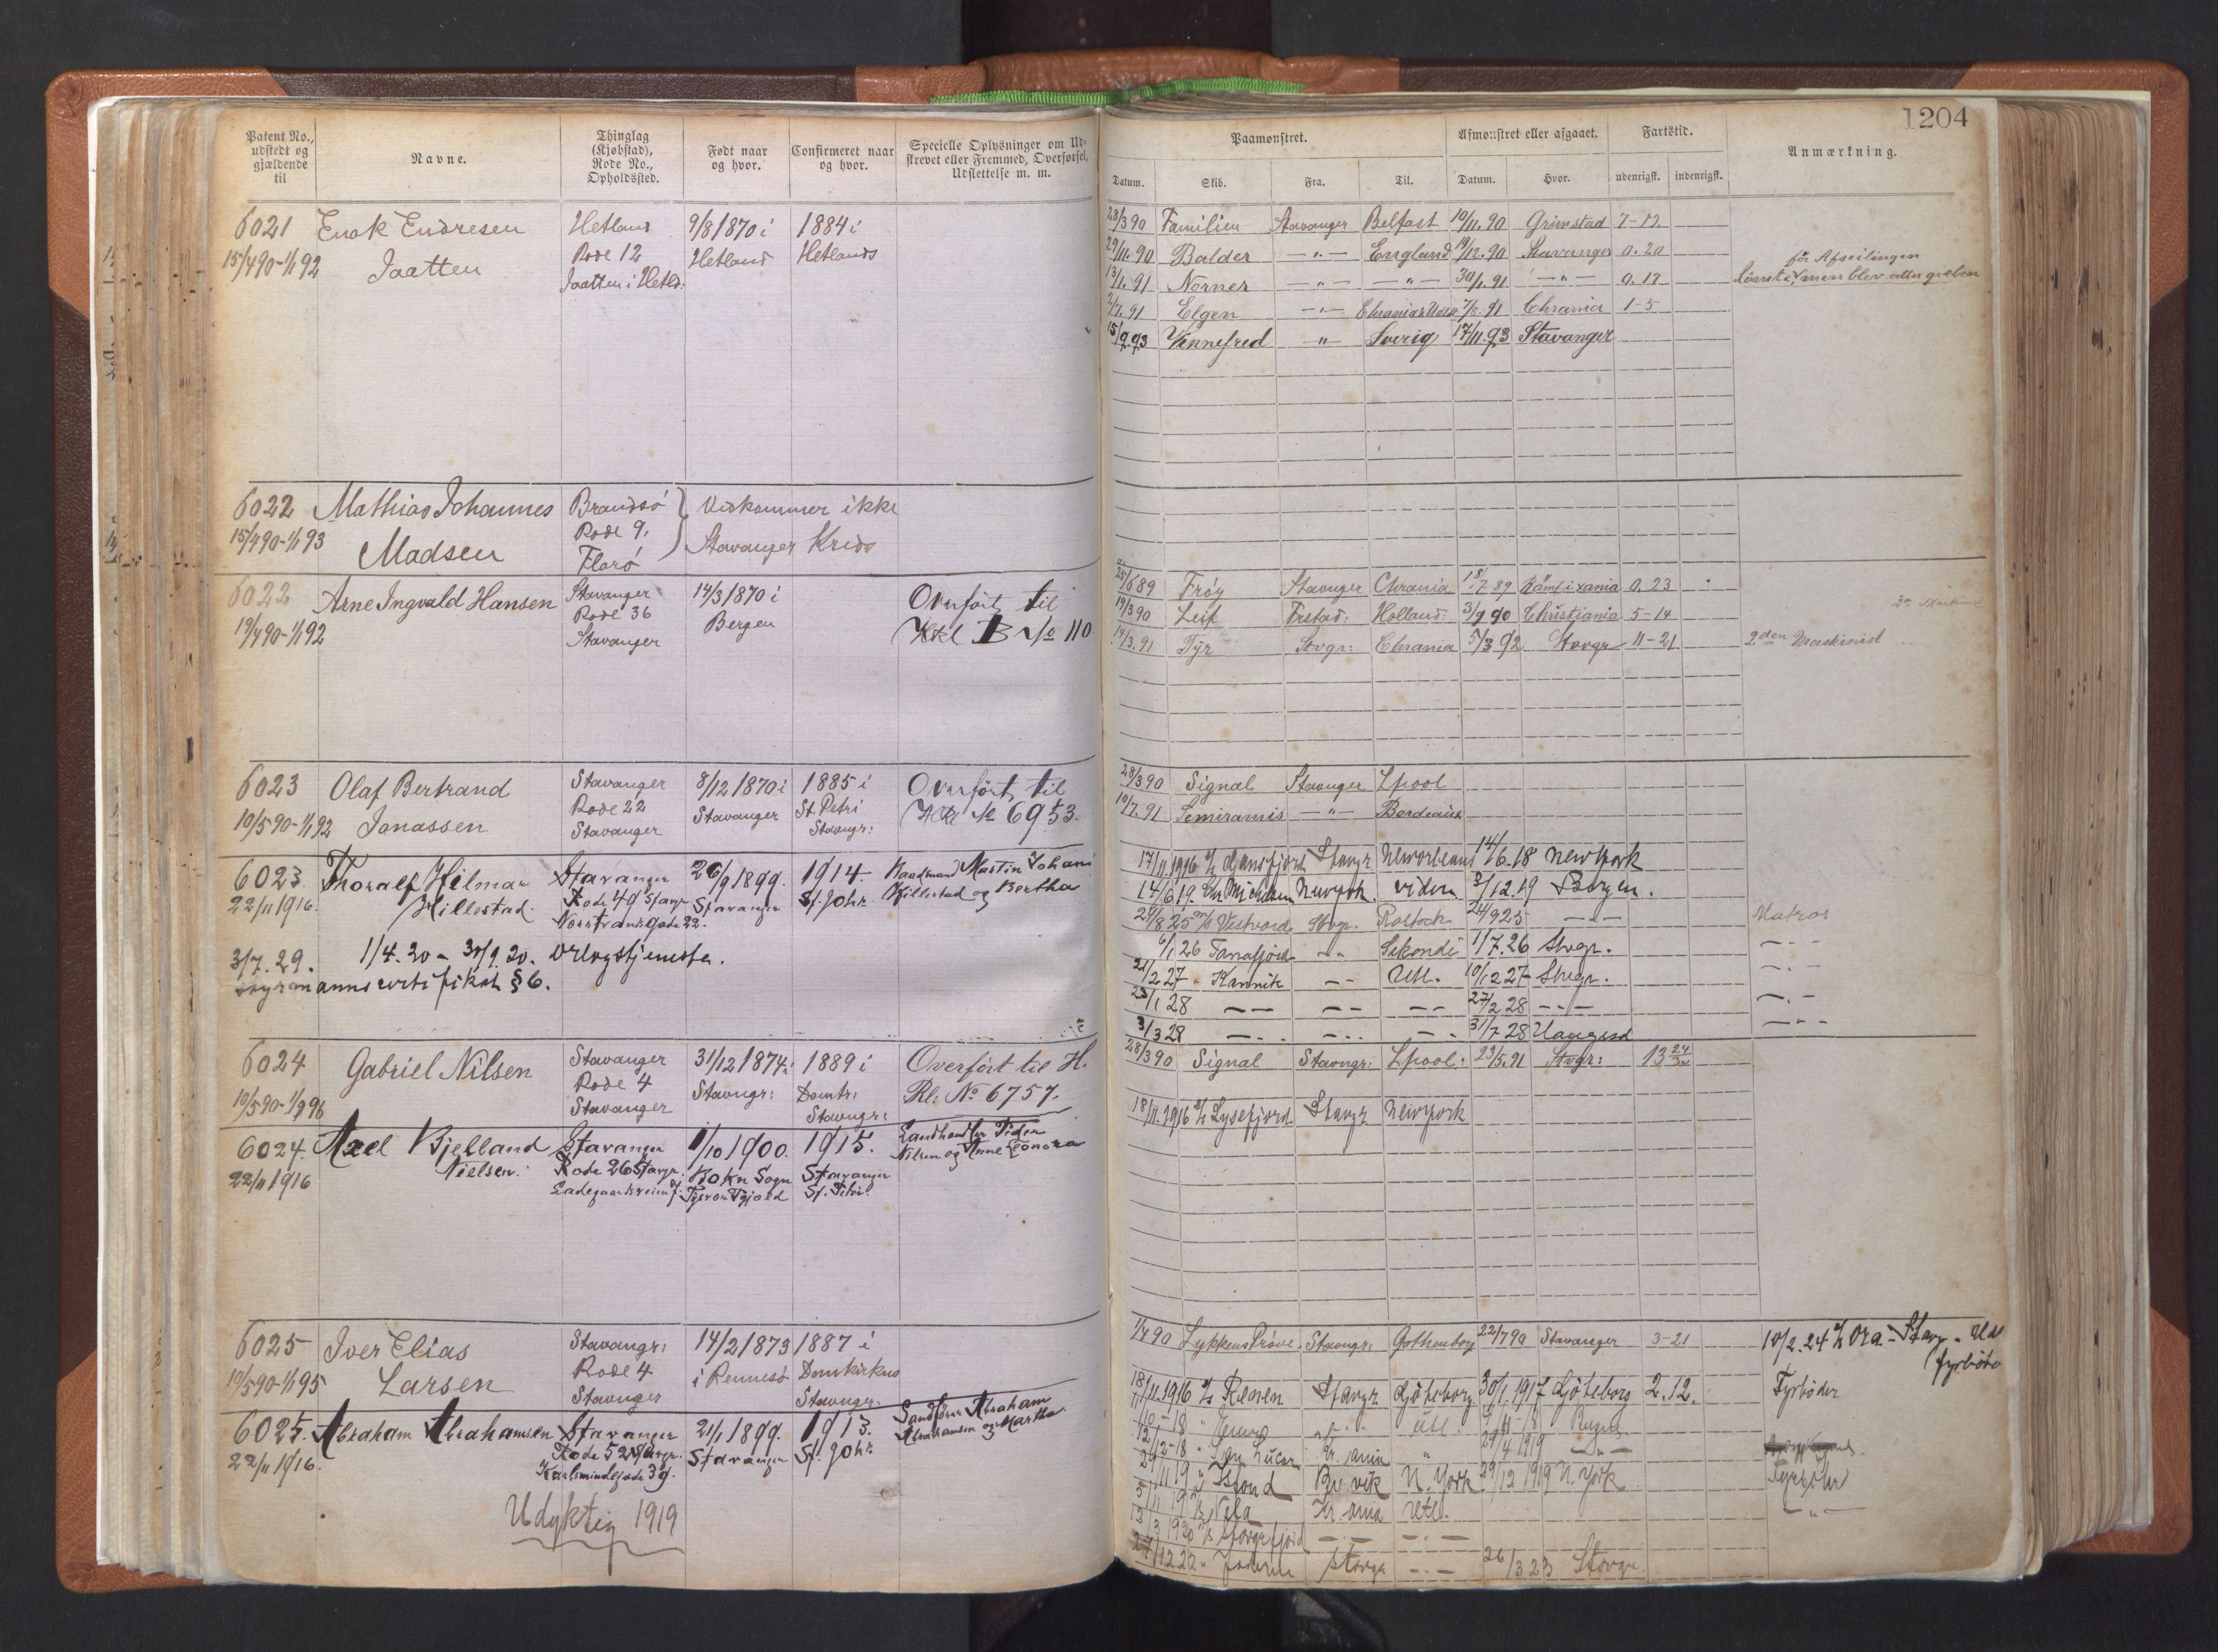 1204
Patent No., udstedt og gjældende til
Navne.
Thinglag (Kjøbstad), Rode No., Opholdssted.
Født naar og hvor.
Confirmeret naar og hvor.
Specielle Oplysninger om Udskrevet eller Fremmed, Overførsel, Udslettelse m. m.
Paamønstret.
Afmønstret eller afgaaet.
Fartstid.
Anmærkning.
Datum. Skib. Fra. Til. Datum. Hvor. udenrigsk. indenrigsk.
6021 Enok Endresen Hetland 9/8 1870 i 1884 i
15/4 90-1/1 92 Jaatten Rode 12 Hetland Hetlands
Jaatten i Hetld.
28/3 90 Familien Stavanger Belfast 10/11.90 Grimstad 7-12
29/11.90 Balder —"— England 19/12.90 Stavanger 0.20
13/1.91 Norner —"— —"— 30/1.91 —"— 0.17
før Afseilingen
Rømte men blev atter greben
2/7.91 Elgen —"— Chrania 7/8.91 Chrania 1-5
15/9.93 Vennefred " Sverig 17/11.93 Stavanger
6022 Mathias Johannes Brandsö Vedkommer ikke
15/4 90-1/1 93 Madsen Rode 9. Stavanger Kreds
Florö
6022 Arne Ingvald Hansen Stavanger 14/3 1870 i Overfört til
19/4 90-1/1 92 Rode 36 Bergen Hkl B No 110
Stavanger
25/6 89 Fröy Stavanger Chrania 18/7 89 0.23
19/3 90 Leif Frstad: Holland: 3/9 90 Christiania 5-14
14/3.91 Tyr Stvgr: Chrania 5/3 92 Stavgr 11-21 2den Maskinist
6023 Olaf Bertrand Stavanger 8/12 1870 i 1885 i Overfört til
10/5 90-1/1 92 Jonassen Rode 22 Stavanger St. Petri No 6953.
Stavanger Stavngr:
28/3 90 Signal Stavanger Lpool
10/7.91 Semiramis —"— Bordeaux
6023. Thoralf Hilmar Stavanger 26/9 1899. 1914. Martin Johan
22/11 1916. Hillestad. Rode 49 Stavgr Stavanger St. Johs. Hillestad og Bertha
gade 22.
3/7.29. 1/4.20 - 30/9.20. Orlogstjeneste.
Styrmannscertifikat § 6.
17/11 1916 Stavgr Neworleans 14/6.18 Newyork
14/6 19. Chr Michelsen Newyork. viden 3/12.19 Bergen.
25 Vestvard Stvgr. Rostock 24/9 25 — — Matros
6/1 26 Tanafjord — " — Sekondi 1/7.26 Stvgr. — " —
21/2 27 " Kannik — " — Utl. 10/12 27 Stvgr. — " —
28/1 28 — — — — — — 27/2 28 — — — " —
3/3 28 — — — — — — 31/7 28 — " —
6024 Gabriel Nilsen Stavanger 31/12 1874 i 1889 i Overfört til H.
10/5 90-1/1 96 Rode 4 Stavngr: Domk: Rl. No 6757.
Stavanger Stavngr:
28/3 90 Signal Stavngr: Lpool: 23/5.91 Stvgr: 13
6024. Axel Kjelland Stavanger 1/10 1900. 1915. Landhandler Peder
22/11 1916 Nielsen. Rode 26 Stavgr. Sogn Stavanger Nilsen og Anne Leonora
St. Petri.
18/11.1916 Lysefjord. Stavgr Newyork
6025 Iver Elias Stavangr: 14/2 1873 1887 i
10/5 90-1/1 95 Larsen Rode 4 i Rennesö Domkirkens
Stavanger Stavngr.
1/7 90 Lykkens Pröve Stavngr: Gothenborg 22/7 90 Stavanger 3-21
10/2.24 Ora - Stavgr - Utl
(fyrböter
6025. Abraham Abrahamsen Stavanger 21/1 1899. 1913. Abraham
22/11 1916. Rode 52 Stavgr. Stavanger St. Johs. Abrahamsen og Martha
gade 39.
Udyktig 1919
18/11.1916 Remen Stavgr Göteborg 30/1.1917 Göteborg 2.12. Fyrböder
Utl
29/4 1919
N. York 29/12 1919 N. York Fyrböder
Vela Kr. ania Utl. — " —
Stavgr 26/3 23 Stavgr.